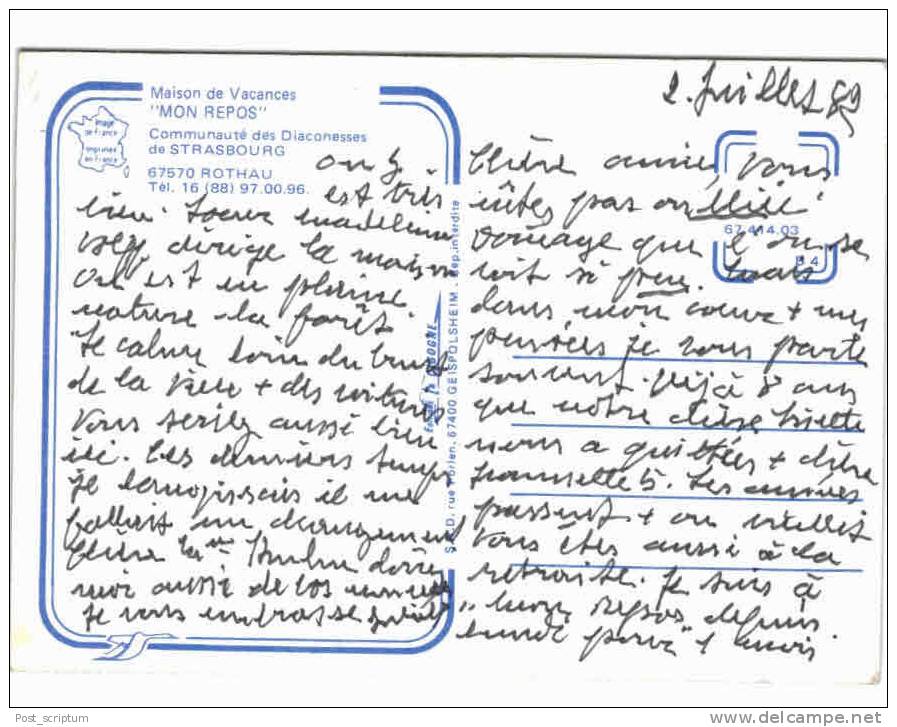 Maison de Vacances
"MON REPOS"
Communauté des Diaconesses
de STRASBOURG
67570 ROTHAU
Tél. 16 (88) 97.00.96.
image
de France
imprimée
en France
2. Juillet 89
Chère amie, vous
êtes pas oubliée
domage que l'on se
voit si peu. mais
dans mon coeur + mes
pensées je vous parle
souvent. Déjà 8 ans
que notre chère Lisette
nous a quittées + chère
5. Les années
passent + on vieillit
Vous êtes aussi à la
retraite. Je suis à
"mon repos depuis
lundi pour" 1 mois
on y
est très
bien. Soeur Madeleine
dirige la maison
On est en pleine
nature - la forêt
le calme loin du bruit
de la ville + des voitures
Vous seriez aussi bien
ici. Ces derniers temps
je languissais il me
fallait un changement
Chère donnez
moi aussi de vos nouvelles
Je vous embrasse
67.414.03
B 4
S.A.E.D. rue 67400 GEISPOLSHEIM. Rep. interdite
LA CIGOGNE
Post_scriptum
delcampe.net